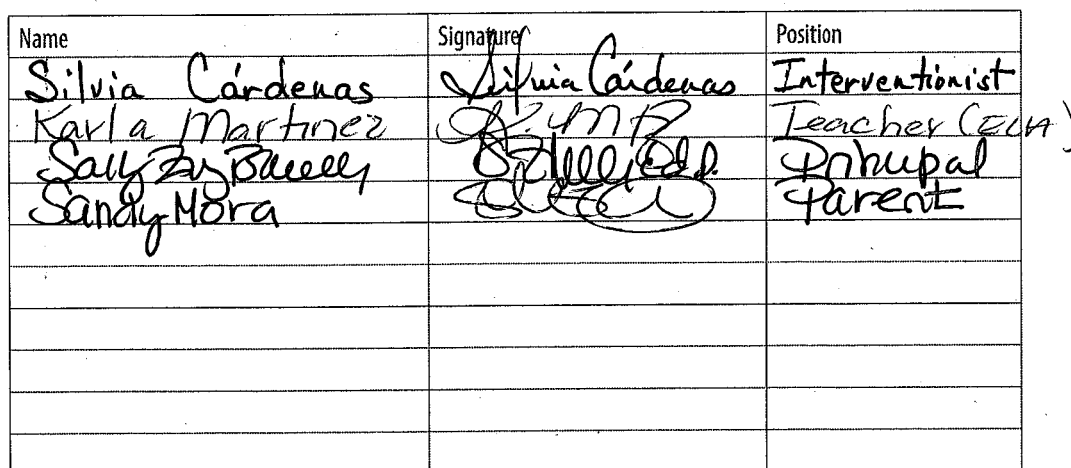 Name Signature Position
Silvia Cárdenas Silvia Cárdenas Interventionist
Karla Martinez Teacher (ELA)
Sally Principal
Sandy Mora Parent